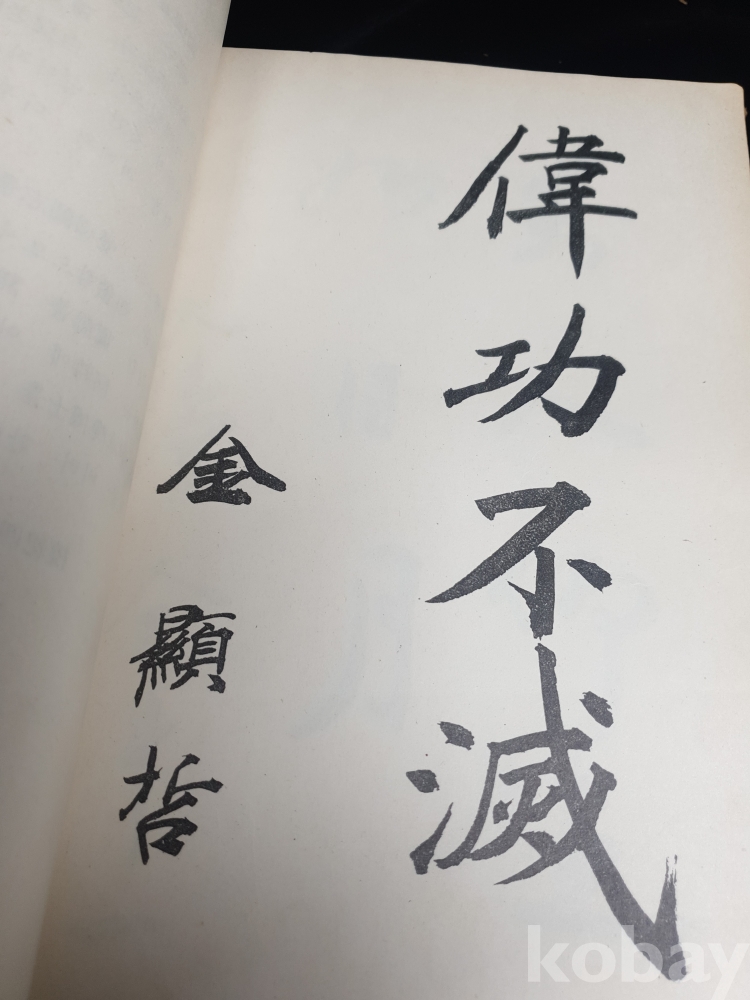 偉功不滅
金顯哲
kobay